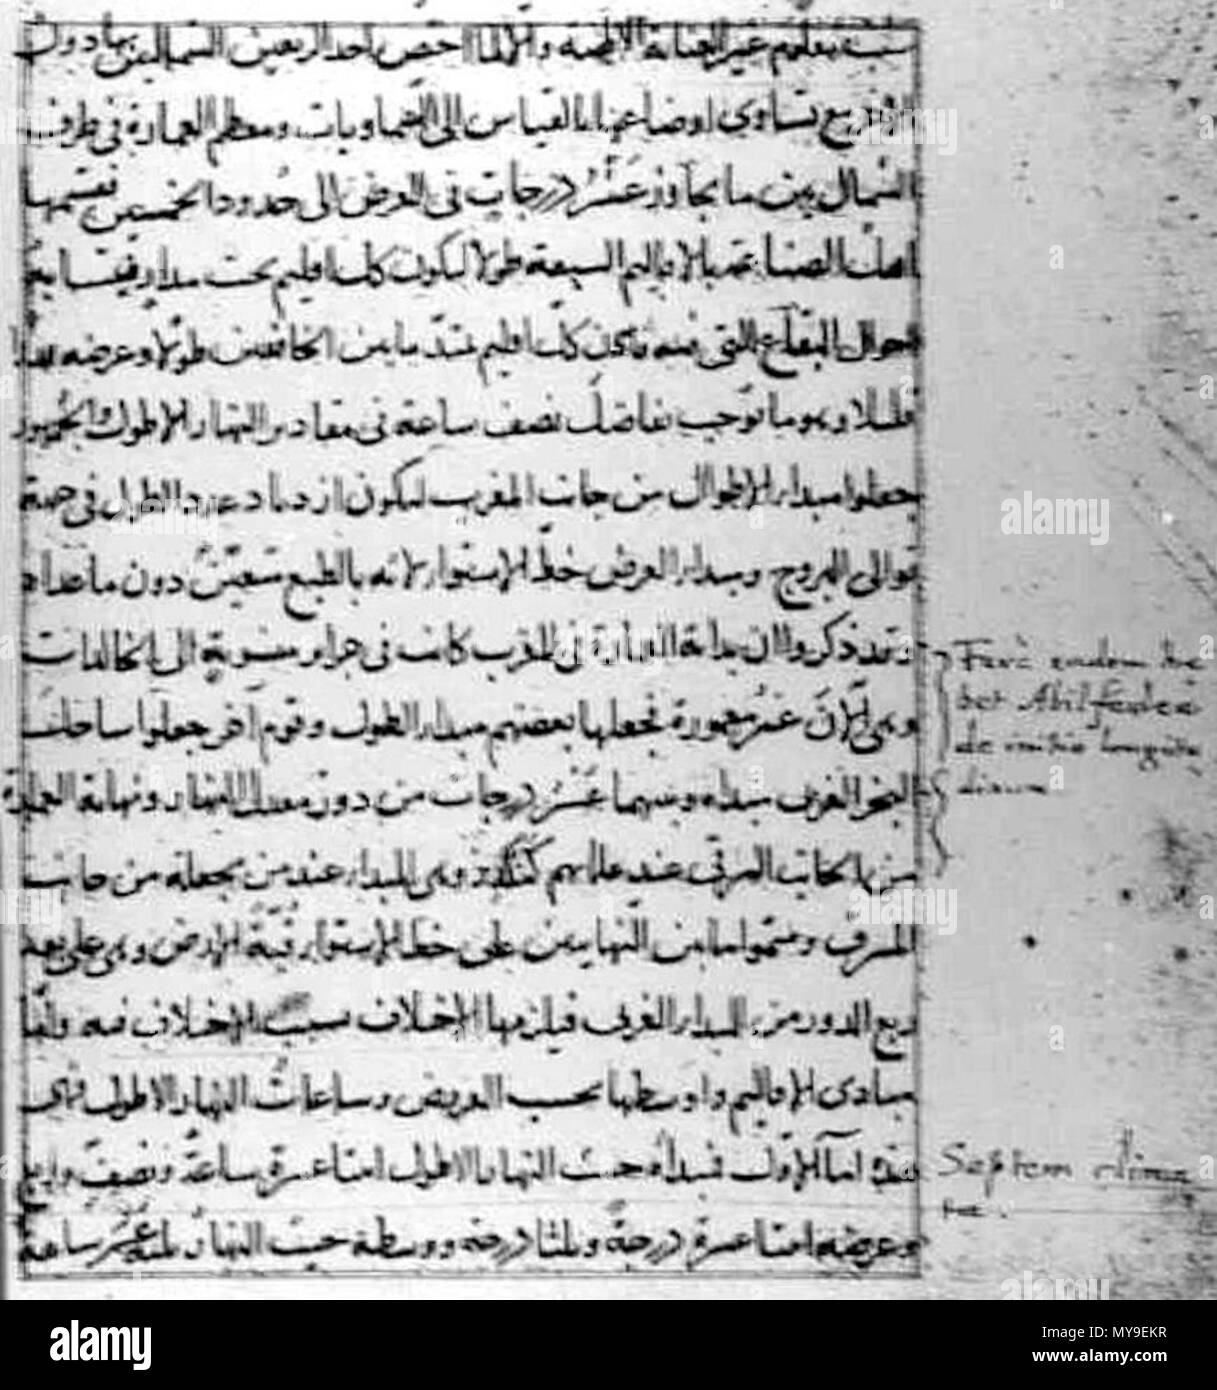 سبب معلوم غير العناية الالهية والا لما اختص احد الربعين الشماليين بها دون
تساوى اوضاعهما بالقياس الى السماويات ومعظم العمارة فى طرف
الشمال بين ما يجاوز عشر درجات فى العرض الى حدود الخمسين فقسمها
اهل الصناعة بالاقاليم السبعة طولا ليكون كل اقليم تحت مدار فيتشابه
احوال البقاع التى فيه فيكون كل اقليم يمتد ما بين الخافقين طولا وعرضه قدرا
قليلا وهو ما يوجب تفاضل نصف ساعة فى مقادير النهار الاطول الجمهور
جعلوا مبدأ الاطوال من جانب المغرب ليكون ازدياد عدد الطول فى جهة
توالى البروج ومبدأ العرض خط الاستواء لانه بالطبع متعين دون ما عداه
وقد ذكروا ان بداءة العمارة فى المغرب كانت فى جزائر منسوبة الى الخالدات
وهى الآن غير معمورة فجعلها بعضهم مبدأ الطول وقوم آخر جعلوا ساحل
البحر الغربى مبدأه وبينهما عشر درجات من دور معدل النهار ونهاية العمارة
من الجانب الشرقى عند علمائهم كنكدز وهى المبدأ عند من يجعله من جانب
المشرق وسموا ما بين النهايتين على خط الاستواء قبة الارض وهى على بعد
ربع الدور من المبدأ الغربى فيلزمها الاختلاف بسبب الاختلاف فيه واما
مبادى الاقاليم واوسطها بحسب العروض وساعات النهار الاطول فهى
هذه اما الاول فمبدأه حيث النهار الاطول اثنا عشرة ساعة ونصف وربع
وعرضه اثنا عشرة درجة وثلثا درجة ووسطه حيث النهار ثلثة عشر ساعة
Ferè eadem ha-
bet Abilfedea
de initio longitu-
dinum
Septem clima-
ta.
alamy stock photo
MY9EKR
www.alamy.com